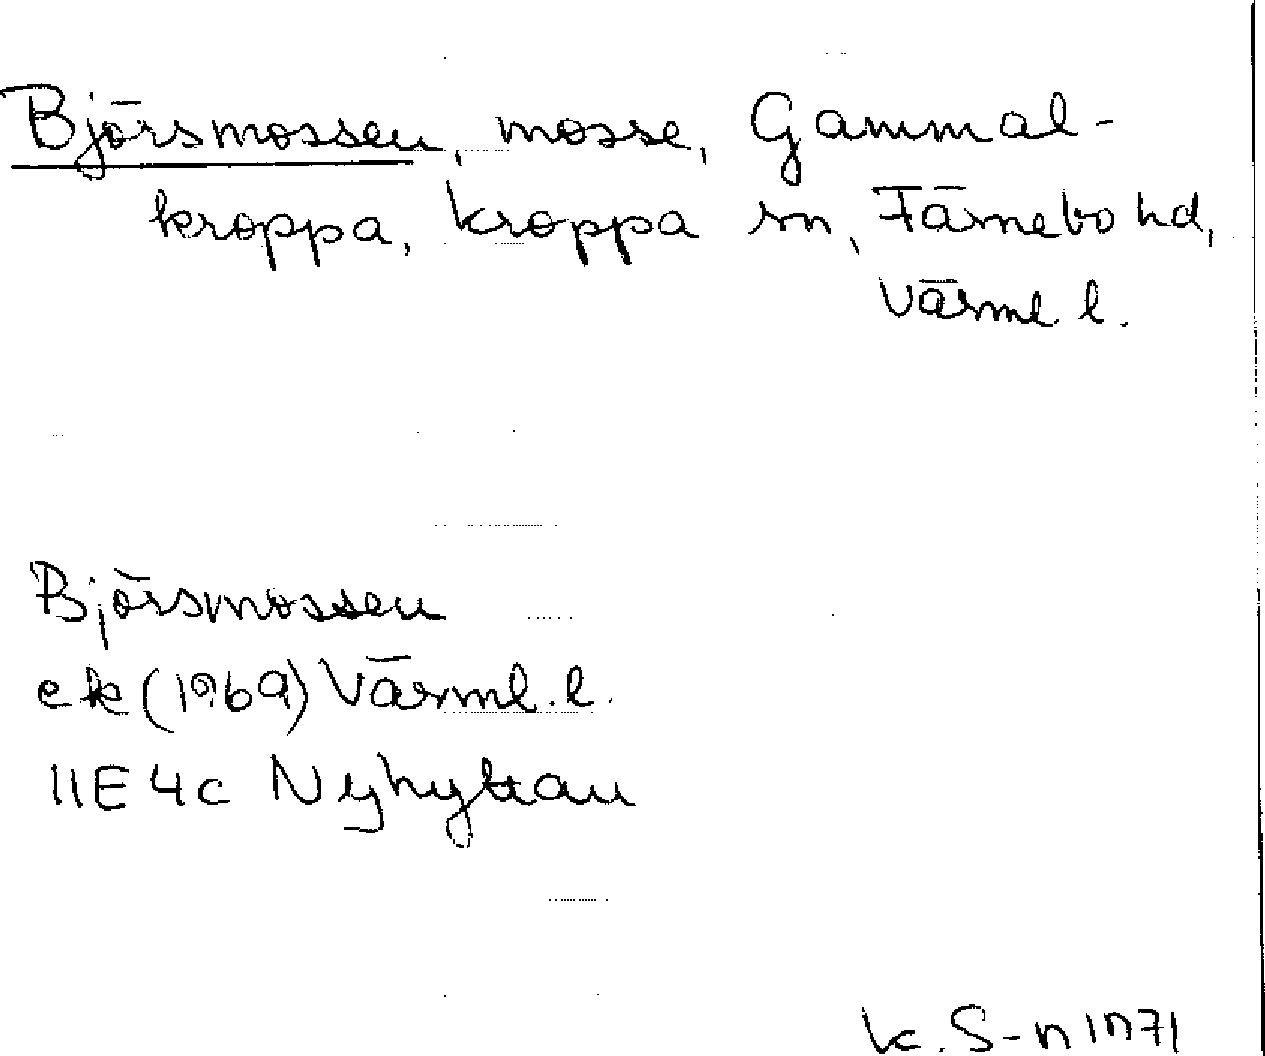 Björsmossen, mosse, Gammal-
kroppa, Kroppa sn, Färnebo hd,
Värml. l.
Björsmossen
ek (1969) Värml. l.
11E 4c Nyhyttan
K. S-n 1971